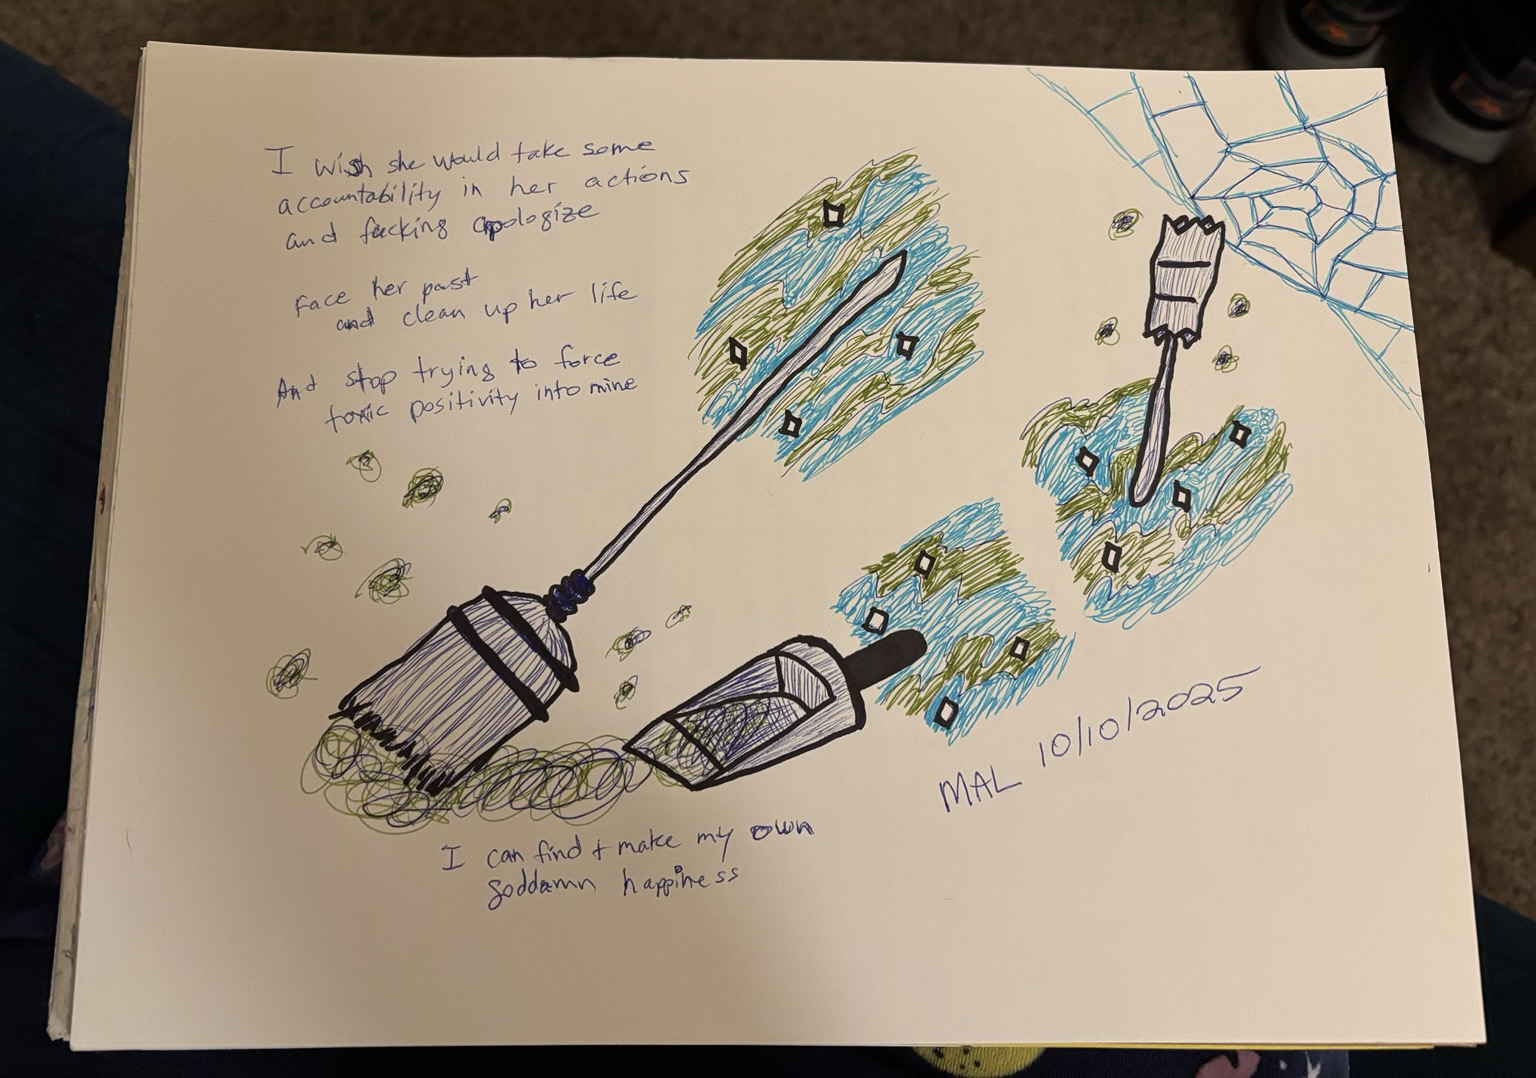 I wish she would take some
accountability in her actions
and fucking apologize
Face her past
and clean up her life
And stop trying to force
toxic positivity into mine
I can find + make my own
goddamn happiness
MAL 10/10/2025